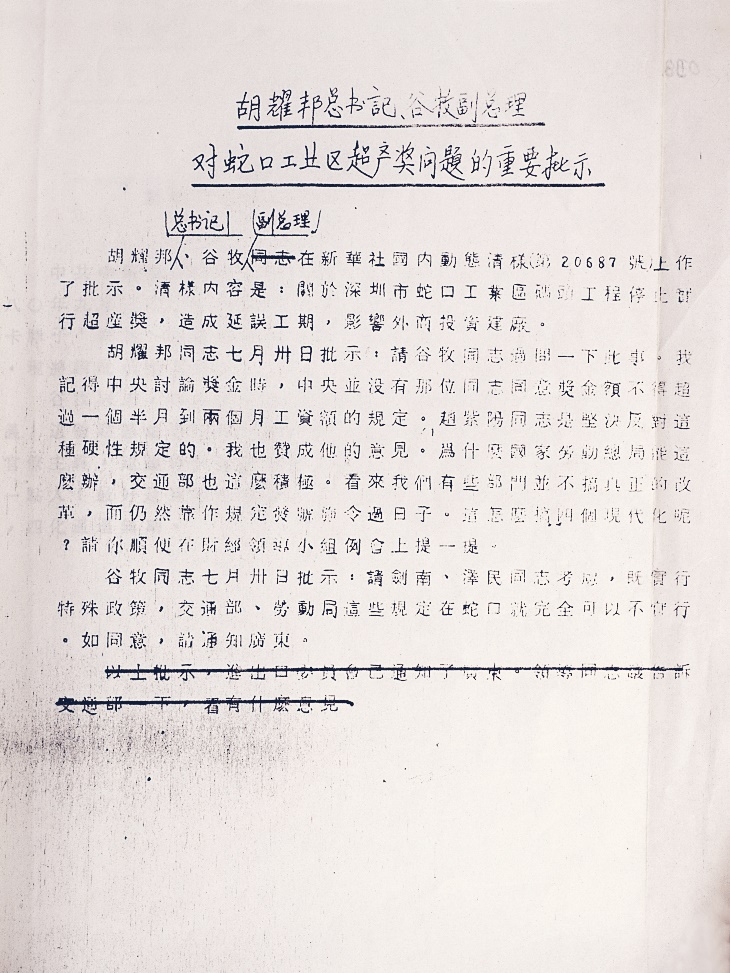 胡耀邦总书記、谷牧副总理
对蛇口工业区超产奖问题的重要批示
总书记 副总理
胡耀邦、谷牧同志在新華社國内動態清樣(第20687號)上作
了批示。清樣内容是：關於深圳市蛇口工業區碼頭工程停止實
行超産獎，造成延誤工期，影響外商投資建廠。
胡耀邦同志七月卅日批示：請谷牧同志過問一下此事。我
記得中央討論獎金時，中央並没有那位同志同意獎金額不得超
過一個半月到兩個月工資額的規定。趙紫陽同志是堅決反對這
種硬性規定的。我也贊成他的意見。爲什麽國家勞動總局能這
麽辦，交通部也這麽積極。看來我們有些部門並不搞真正的改
革，而仍然靠作規定發號施令過日子。這怎麽搞四個現代化呢
？請你順便在財經領導小組例會上提一提。
谷牧同志七月卅日批示：請劍南、澤民同志考慮，既實行
特殊政策，交通部、勞動局這些規定在蛇口就完全可以不實行
。如同意，請通知廣東。
以上批示，進出口委員會已通知了廣東。領導同志 告訴
交通部一下，看有什麽意見